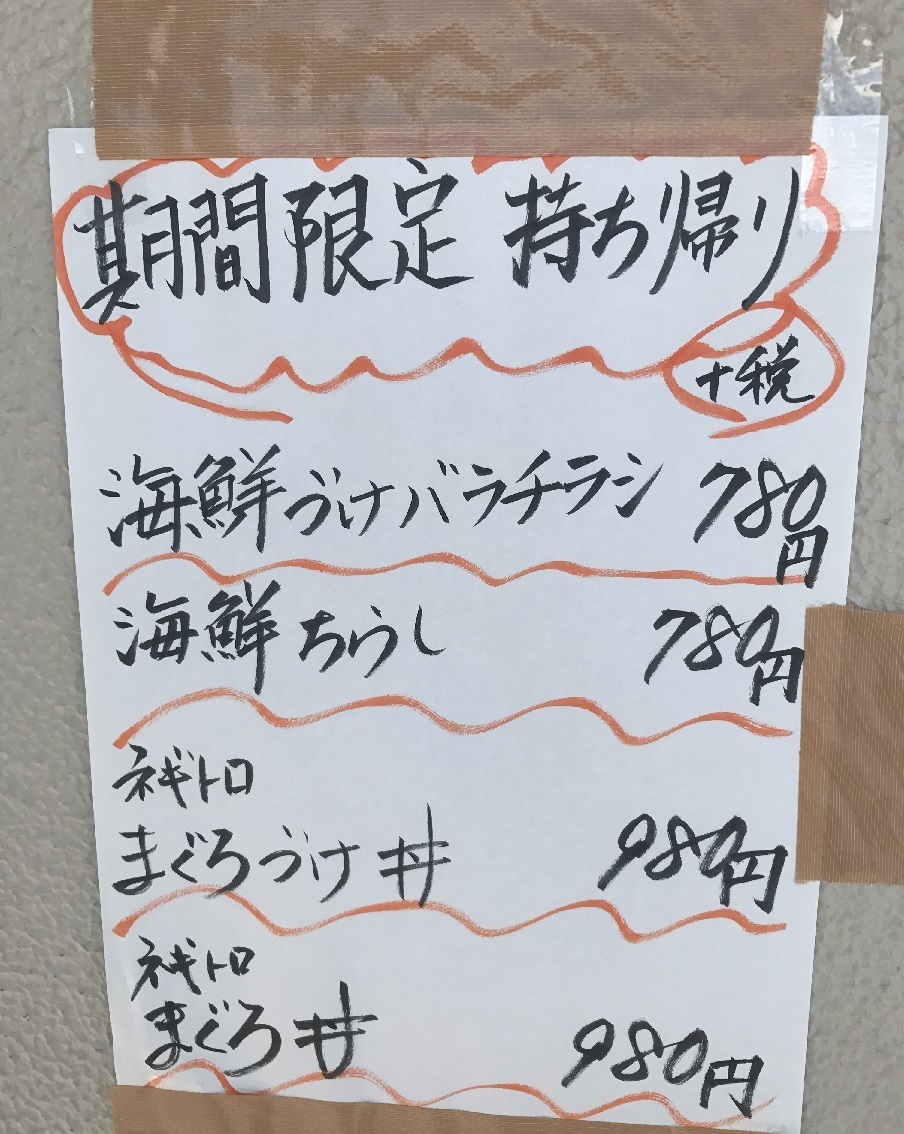 期間限定 持ち帰り
+税
海鮮づけバラチラシ 780円
海鮮ちらし 780円
ネギトロ
まぐろづけ丼 980円
ネギトロ
まぐろ丼 980円